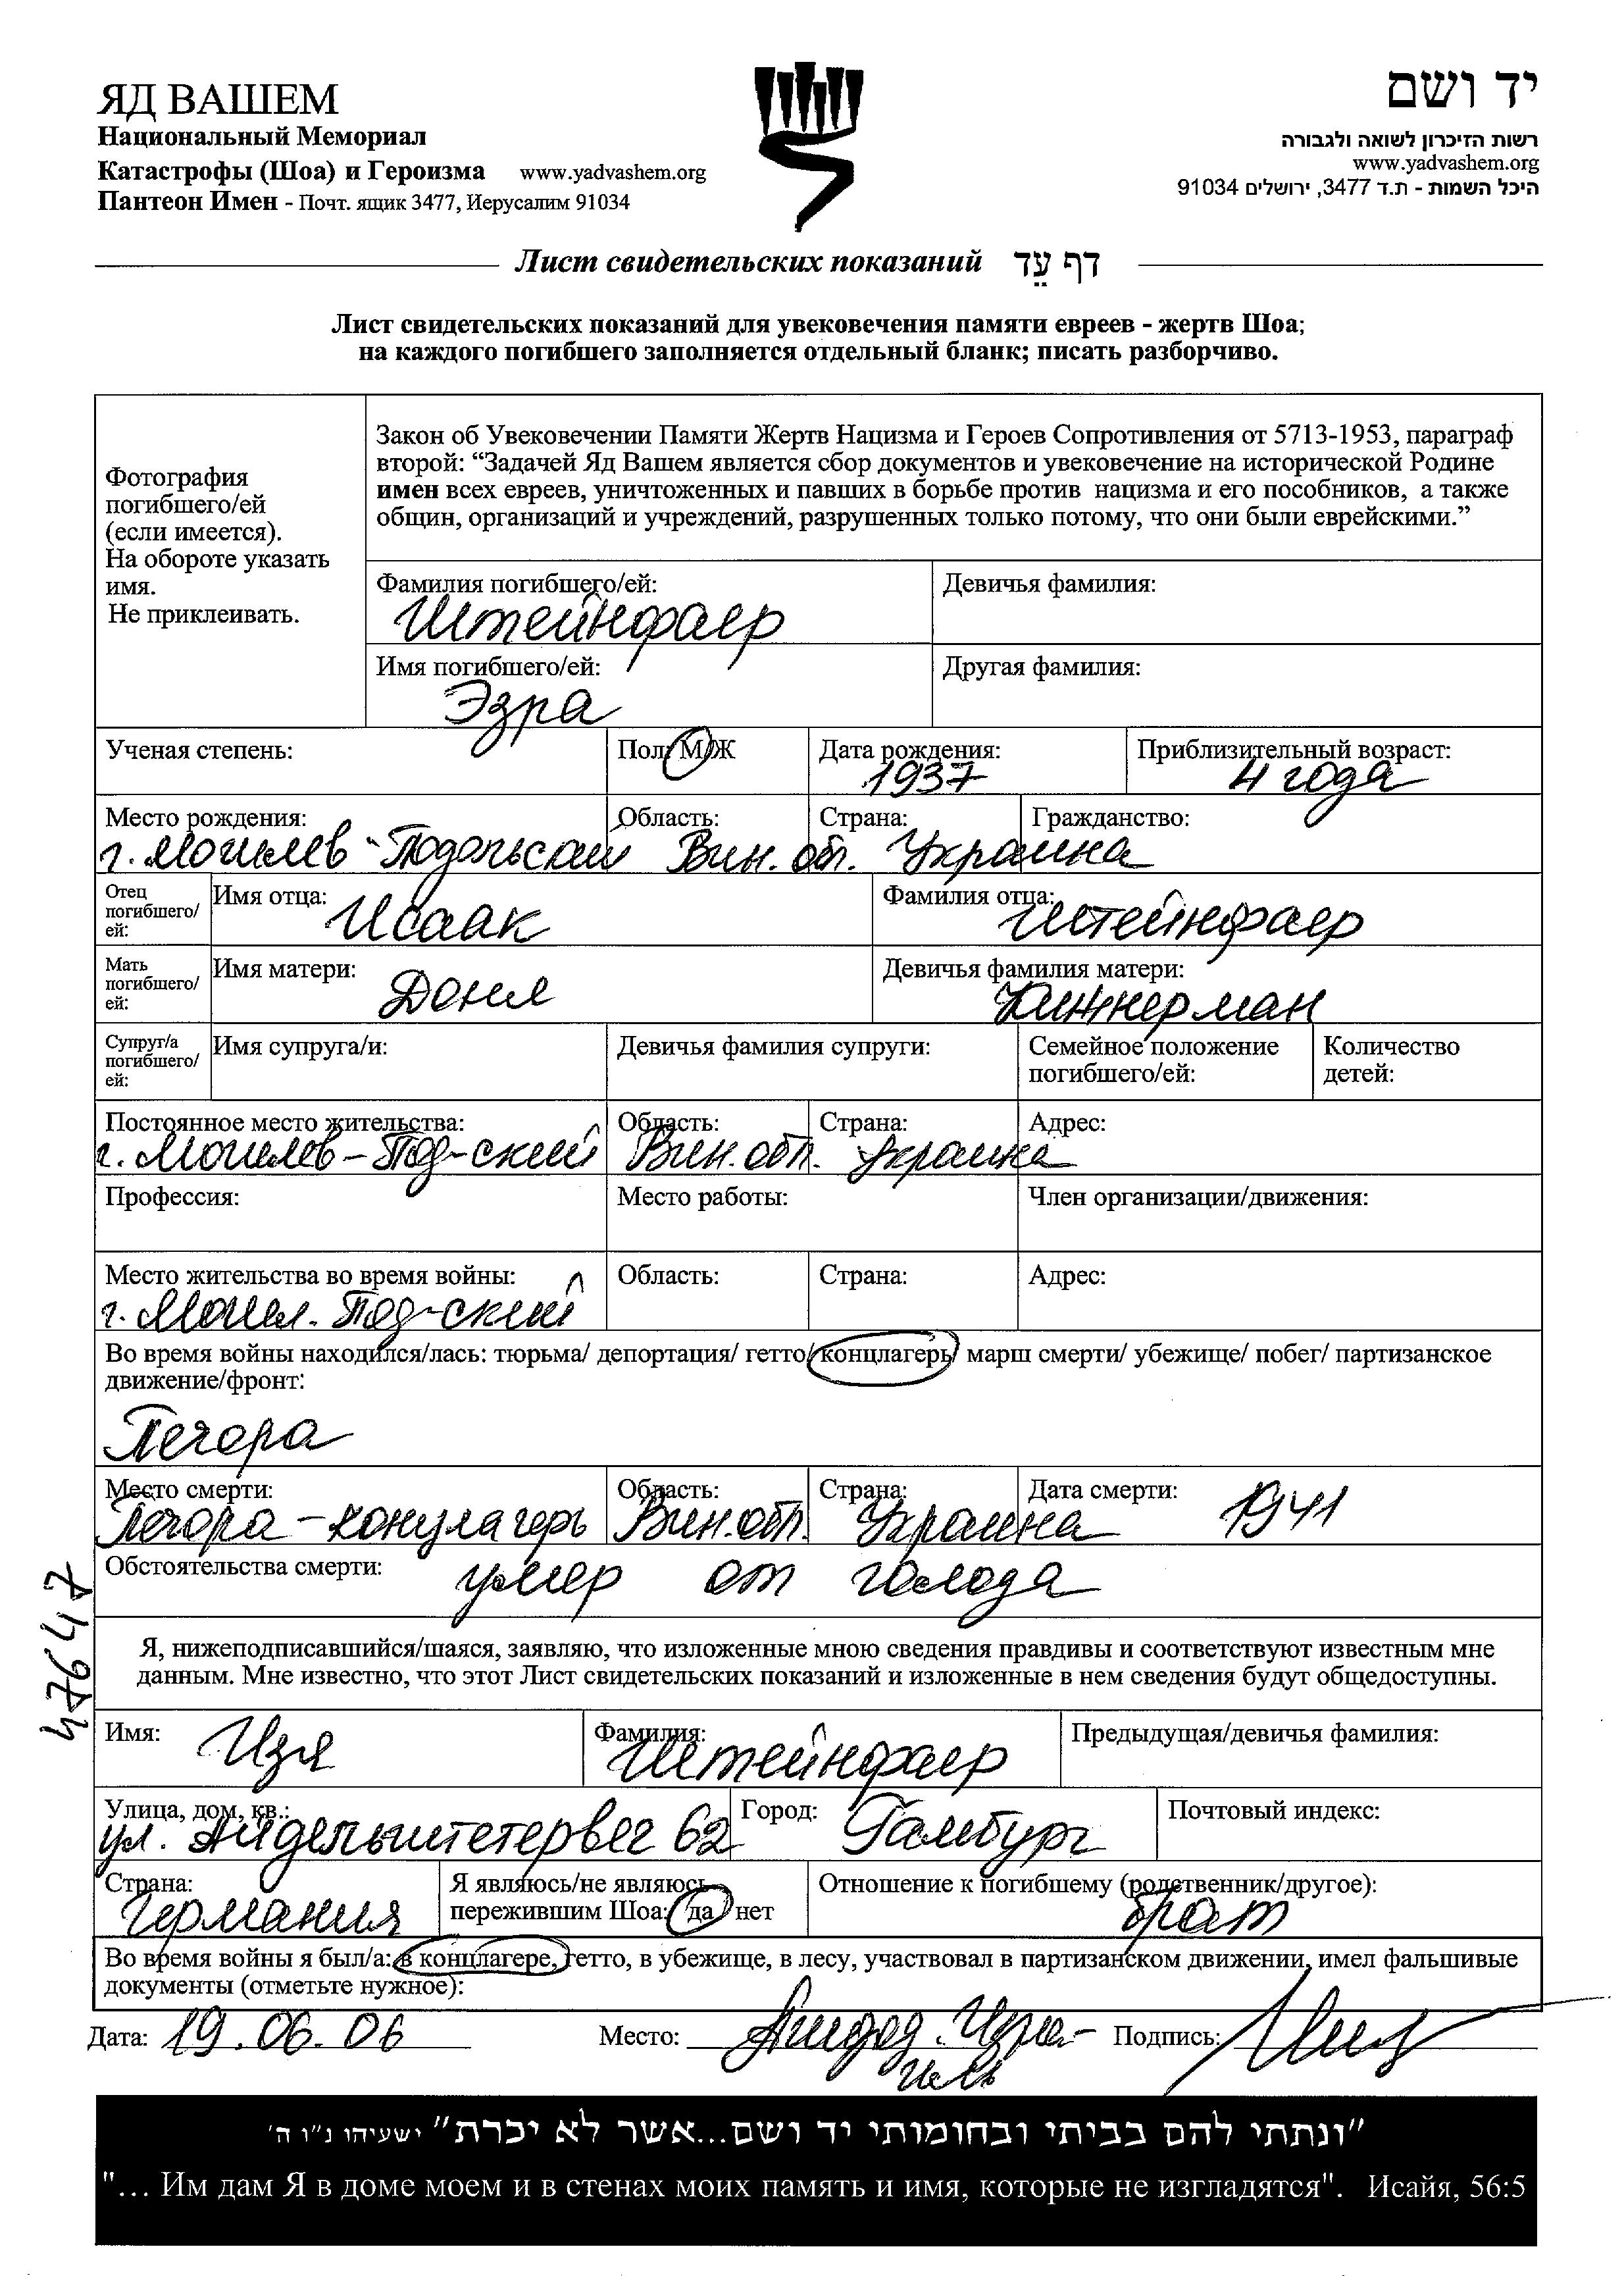 ЯД ВАШЕМ
Национальный Мемориал
Катастрофы (Шоа) и Героизма www.yadvashem.org
Пантеон Имен - Почт. ящик 3477, Иерусалим 91034
יד ושם
רשות הזיכרון לשואה ולגבורה
www.yadvashem.org
היכל השמות - ת.ד 3477, ירושלים 91034
Лист свидетельских показаний דף עֵד
Лист свидетельских показаний для увековечения памяти евреев - жертв Шоа;
на каждого погибшего заполняется отдельный бланк; писать разборчиво.
Фотография
погибшего/ей
(если имеется).
На обороте указать
имя.
Не приклеивать.
Закон об Увековечении Памяти Жертв Нацизма и Героев Сопротивления от 5713-1953, параграф
второй: “Задачей Яд Вашем является сбор документов и увековечение на исторической Родине
имен всех евреев, уничтоженных и павших в борьбе против нацизма и его пособников, а также
общин, организаций и учреждений, разрушенных только потому, что они были еврейскими.”
Фамилия погибшего/ей: Девичья фамилия:
Штейнфаер
Имя погибшего/ей: Другая фамилия:
Эзра
Ученая степень: Пол: М/Ж Дата рождения: Приблизительный возраст:
1937 4 года
Место рождения: Область: Страна: Гражданство:
г. Могилев-Подольский Вин. обл. Украина
Отец
погибшего/
ей:
Имя отца: Исаак Фамилия отца: Штейнфаер
Мать
погибшего/
ей:
Имя матери: Доня Девичья фамилия матери:
Супруг/а
погибшего/
ей:
Имя супруга/и: Девичья фамилия супруги: Семейное положение
погибшего/ей: Количество
детей:
Постоянное место жительства: Область: Страна: Адрес:
г. Могилев-Под-ский Вин. обл. Украина
Профессия: Место работы: Член организации/движения:
Место жительства во время войны: Область: Страна: Адрес:
г. Могил. Под-ский
Во время войны находился/лась: тюрьма/ депортация/ гетто/ концлагерь/ марш смерти/ убежище/ побег/ партизанское
движение/фронт:
Печора
Место смерти: Область: Страна: Дата смерти: 1941
Печора-концлагерь Вин. обл. Украина
Обстоятельства смерти: умер от голода
Я, нижеподписавшийся/шаяся, заявляю, что изложенные мною сведения правдивы и соответствуют известным мне
данным. Мне известно, что этот Лист свидетельских показаний и изложенные в нем сведения будут общедоступны.
Имя: Изя Фамилия: Штейнфаер Предыдущая/девичья фамилия:
Улица, дом, кв.: Город: Гамбург Почтовый индекс:
ул. Айдельштетервег 62
Страна: Германия Я являюсь/не являюсь
пережившим Шоа: да нет
Отношение к погибшему (родственник/другое):
брат
Во время войны я был/а: в концлагере, гетто, в убежище, в лесу, участвовал в партизанском движении, имел фальшивые
документы (отметьте нужное):
Дата: 19.06.06 Место: Ашдод. Изра-
иль
Подпись:
"ונתתי להם בביתי ובחומותי יד ושם...אשר לא יכרת" ישעיהו נ"ו ה'
"... Им дам Я в доме моем и в стенах моих память и имя, которые не изгладятся". Исайя, 56:5